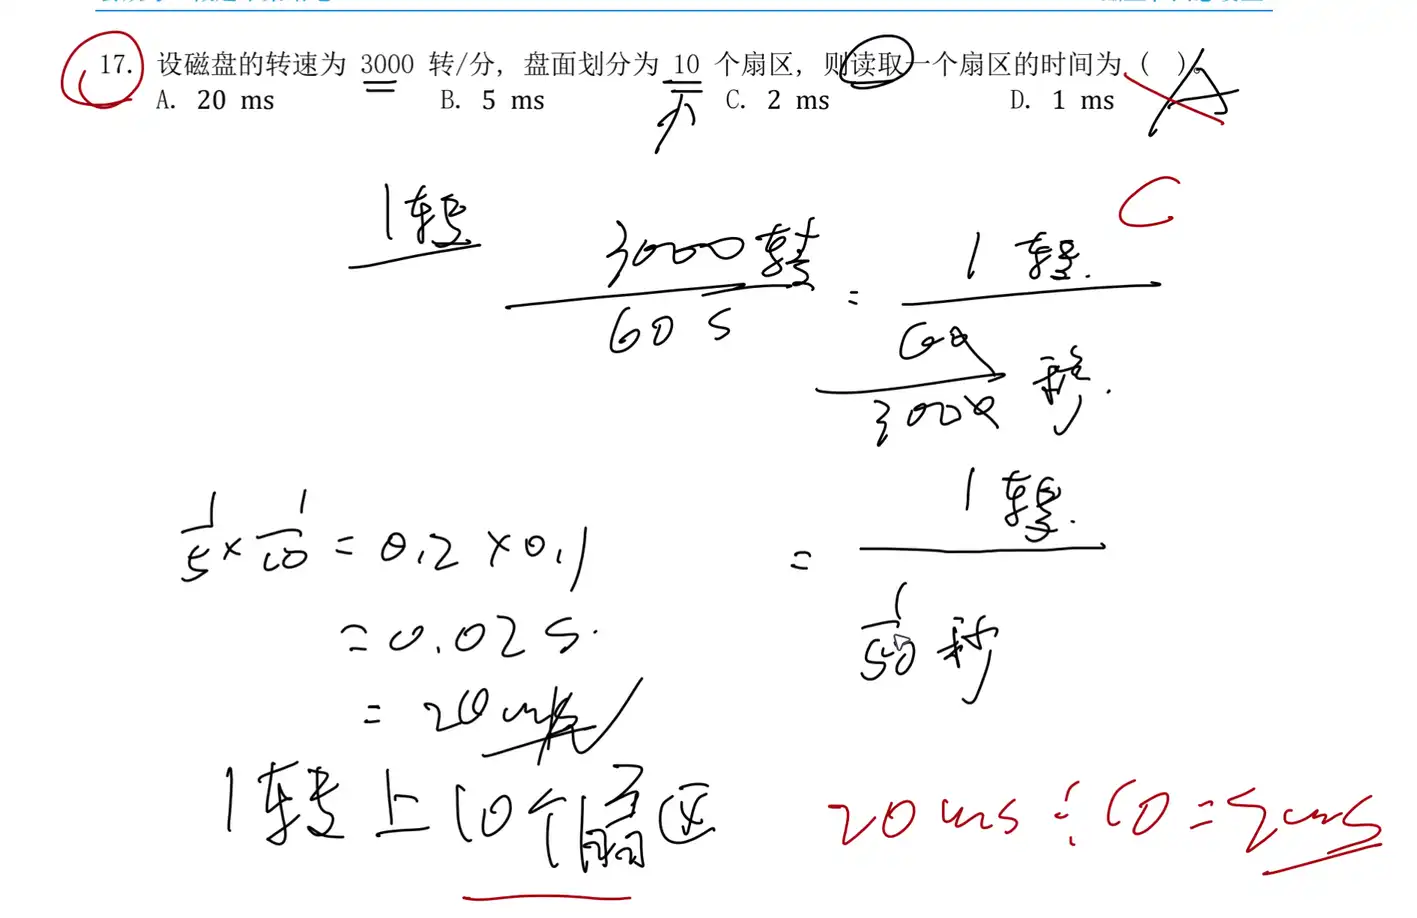 17. 设磁盘的转速为 3000 转/分，盘面划分为 10 个扇区，则读取一个扇区的时间为（ ）。
A. 20 ms B. 5 ms C. 2 ms D. 1 ms
A
C
1转
3000转
60 s
=
1 转.
60
3000
秒.
1/5 × 1/10 = 0.2 × 0.1
= 0.02 s.
= 20 ms
=
1 转.
1
50 秒
1转上10个扇区
20 ms ÷ 10 = 2ms